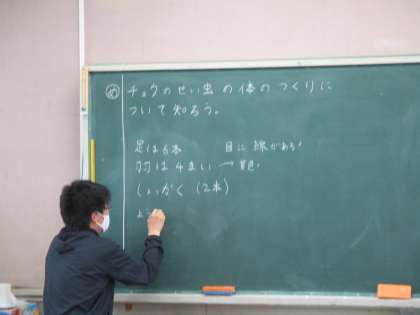 め チョウのせい虫の体のつくりに
ついて知ろう。
足は6本 目に線がある!
羽は4まい → 黄色。
しょっかく (2本)
よう